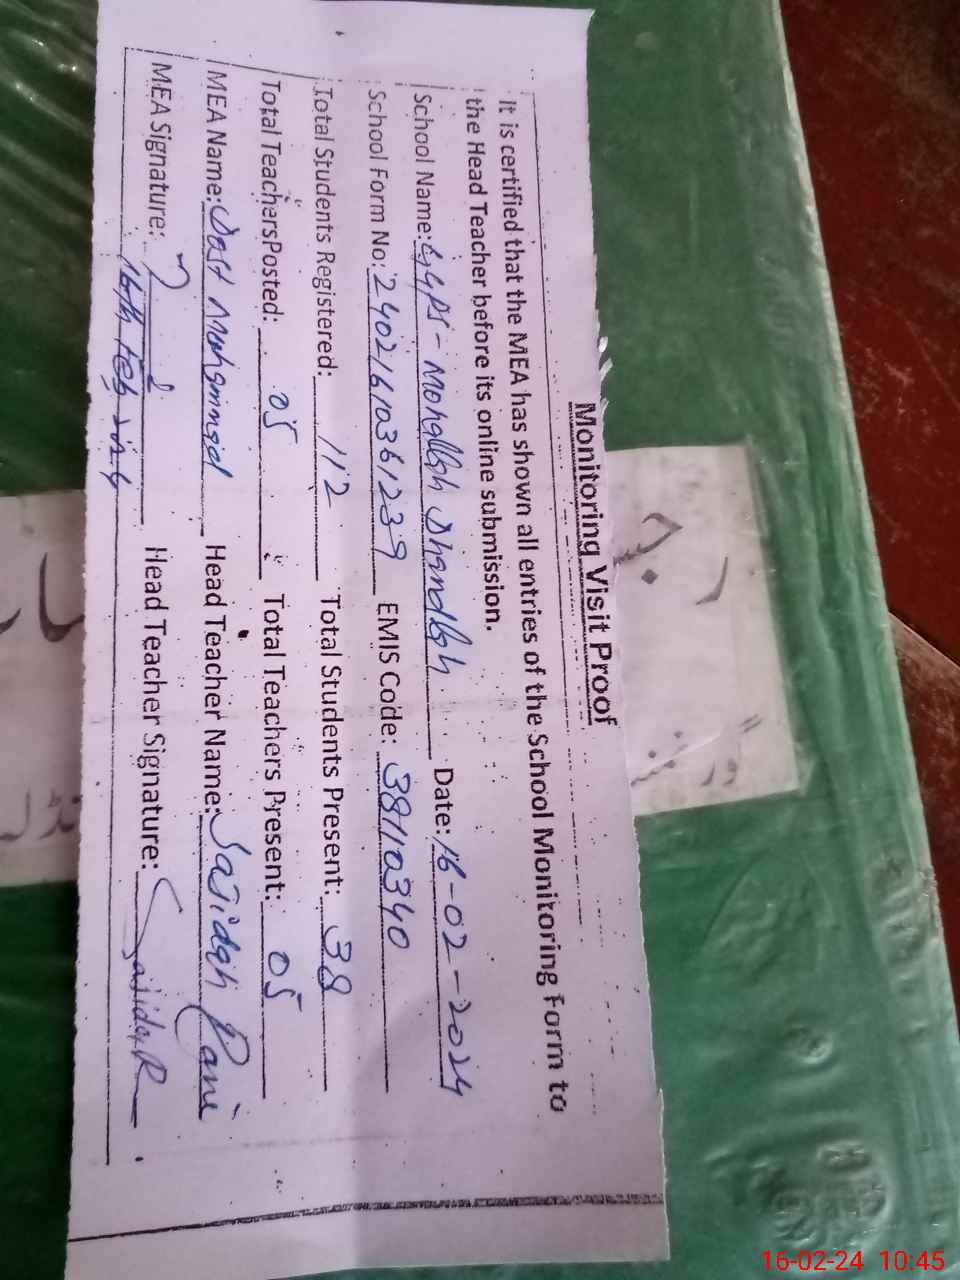 Monitoring Visit Proof
It is certified that the MEA has shown all entries of the School Monitoring Form to
the Head Teacher before its online submission.
School Name: GGPS - Mohallah Dhandlah Date: 16-02-2024
School Form No: 24021610361239 EMIS Code: 38110340
Total Students Registered: 112 Total Students Present: 38
Total TeachersPosted: 05 Total Teachers Present: 05
MEA Name: Dost Mohammad Head Teacher Name: Sajidah Rani
MEA Signature: Head Teacher Signature: Sajida R
16th Feb 2024
16-02-24 10:45